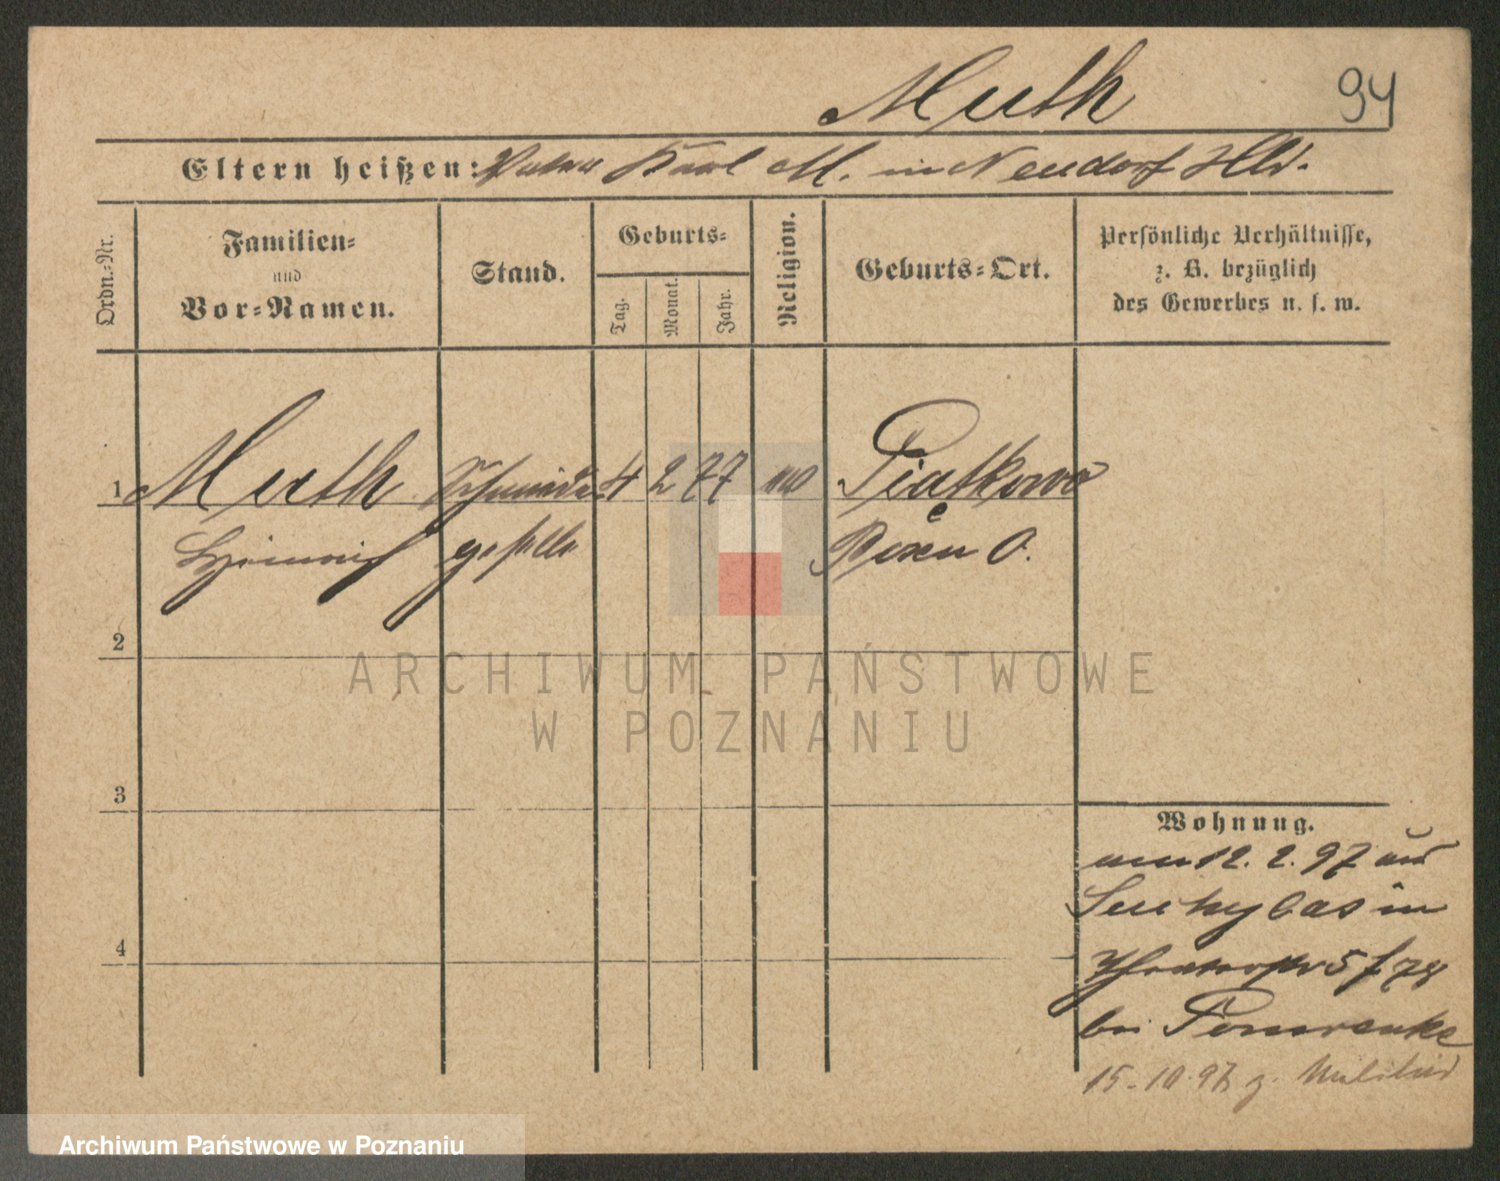 Muth 94
Eltern heißen: Vater Karl M. in Neudorf Hld.
Ordn.=Nr.
Familien=
und
Vor=Namen.
Stand.
Geburts=
Tag.
Monat.
Jahr.
Religion.
Geburts=Ort.
Persönliche Verhältnisse,
z. B. bezüglich
des Gewerbes u. s. w.
1 Muth Schmiede 4 2 77 Piatkowo
Heinrich geselle Posen O.
2
3
4
ARCHIWUM PAŃSTWOWE
W POZNANIU
Wohnung.
am 12. 2. 97 aus
in
5
bei Pomrenke
15.10.97 z. Militär
Archiwum Państwowe w Poznaniu